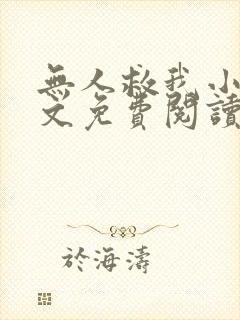 無人救我小
文免費閱讀
於海濤